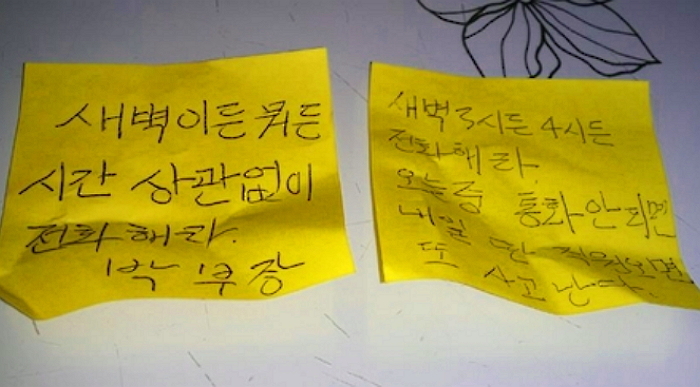 새벽이든 뭐든
시간 상관없이
전화해라.
박부장
새벽 3시든 4시든
전화해라.
오늘중 통화안되면
내일 또 딴 직원보면
사고난다.